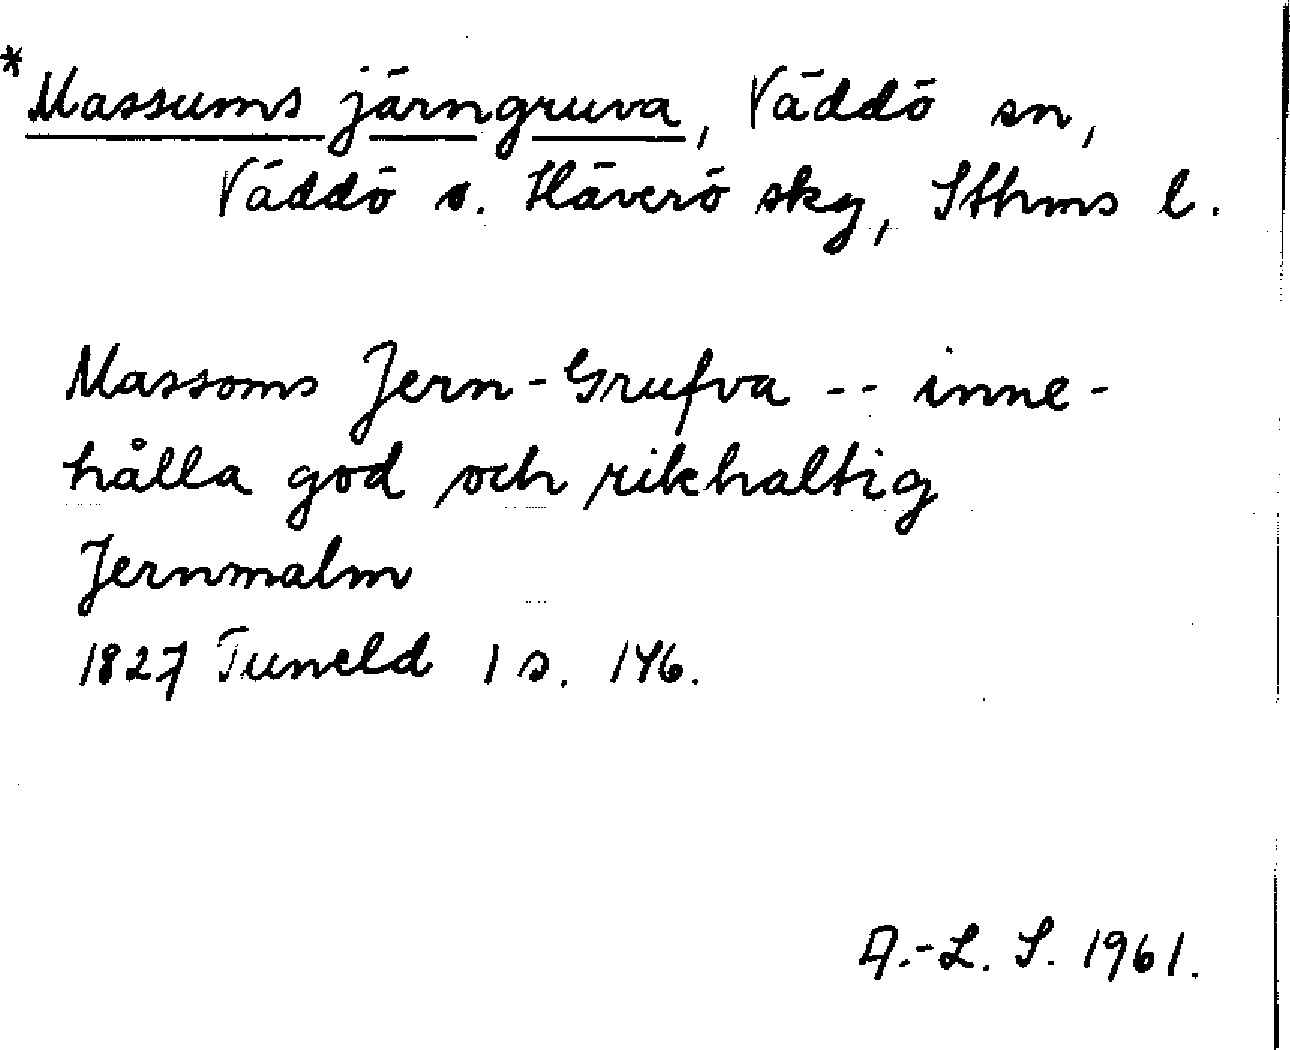 * Massums järngruva, Väddö sn,
Väddö o. Häverö skg, Sthms l.
Massoms Jern-Grufva -- inne-
hålla god och rikhaltig
Jernmalm
1827 Tuneld 1 s. 146.
A.-L. S. 1961.